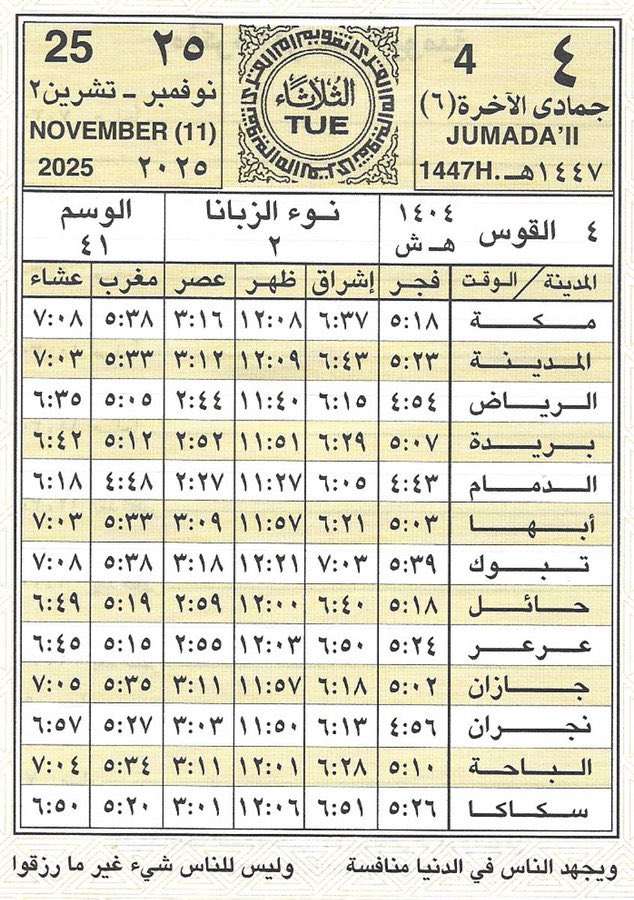 ٤ 4
جمادى الآخرة (٦)
JUMADA'II
1447H. ١٤٤٧هـ
الثلاثاء
TUE
25 ٢٥
نوفمبر - تشرين٢
NOVEMBER (11)
2025 ٢٠٢٥
٤ القوس ١٤٠٤ هـ ش
نوء الزبانا ٢
الوسم ٤١
المدينة / الوقت فجر إشراق ظهر عصر مغرب عشاء
مكة ٥:١٨ ٦:٣٧ ١٢:٠٨ ٣:١٦ ٥:٣٨ ٧:٠٨
المدينة ٥:٢٣ ٦:٤٣ ١٢:٠٩ ٣:١٢ ٥:٣٣ ٧:٠٣
الرياض ٤:٥٤ ٦:١٥ ١١:٤٠ ٢:٤٤ ٥:٠٥ ٦:٣٥
بريدة ٥:٠٧ ٦:٢٩ ١١:٥١ ٢:٥٢ ٥:١٢ ٦:٤٢
الدمام ٤:٤٣ ٦:٠٥ ١١:٢٧ ٢:٢٧ ٤:٤٨ ٦:١٨
أبها ٥:٠٣ ٦:٢١ ١١:٥٧ ٣:٠٩ ٥:٣٣ ٧:٠٣
تبوك ٥:٣٩ ٧:٠٣ ١٢:٢١ ٣:١٨ ٥:٣٨ ٧:٠٨
حائل ٥:١٨ ٦:٤٠ ١٢:٠٠ ٢:٥٩ ٥:١٩ ٦:٤٩
عرعر ٥:٢٤ ٦:٥٠ ١٢:٠٣ ٢:٥٥ ٥:١٥ ٦:٤٥
جازان ٥:٠٢ ٦:١٨ ١١:٥٧ ٣:١١ ٥:٣٥ ٧:٠٥
نجران ٤:٥٦ ٦:١٣ ١١:٥٠ ٣:٠٣ ٥:٢٧ ٦:٥٧
الباحة ٥:١٠ ٦:٢٨ ١٢:٠١ ٣:١١ ٥:٣٤ ٧:٠٤
سكاكا ٥:٢٦ ٦:٥١ ١٢:٠٦ ٣:٠١ ٥:٢٠ ٦:٥٠
ويجهد الناس في الدنيا منافسة وليس للناس شيء غير ما رزقوا